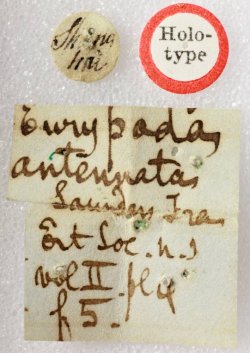 Shang
hai
Holo-
type
Eurypoda
antennata
Saunders Tra
Ent Soc. n. s
vol II pl 4
f 5.